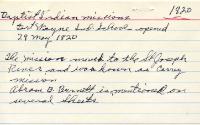 1820
Baptist Indian missions
Fort Wayne Ind. school opened
29 May 1820
The mission moved to the St Joseph
River and was known as Carey
mission
Abram B. Burnett is mentioned on
several sheets